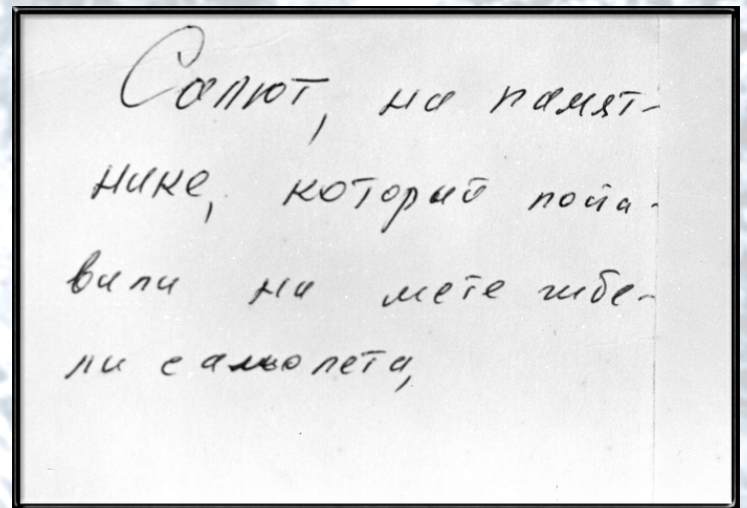 Салют, на памят-
нике, который поста-
вили на мете гибе-
ли самьолета,